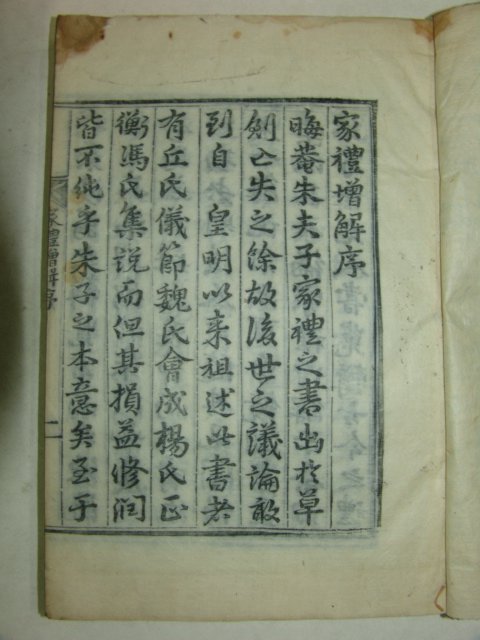 家禮增解序
晦菴朱夫子家禮之書出於草
創亡失之餘故後世之議論敢
到自 皇明以来祖述此書者
有丘氏儀節魏氏會成楊氏正
衡馮氏集說而但其損益修潤
皆不純乎朱子之本意矣至于
家禮增解序